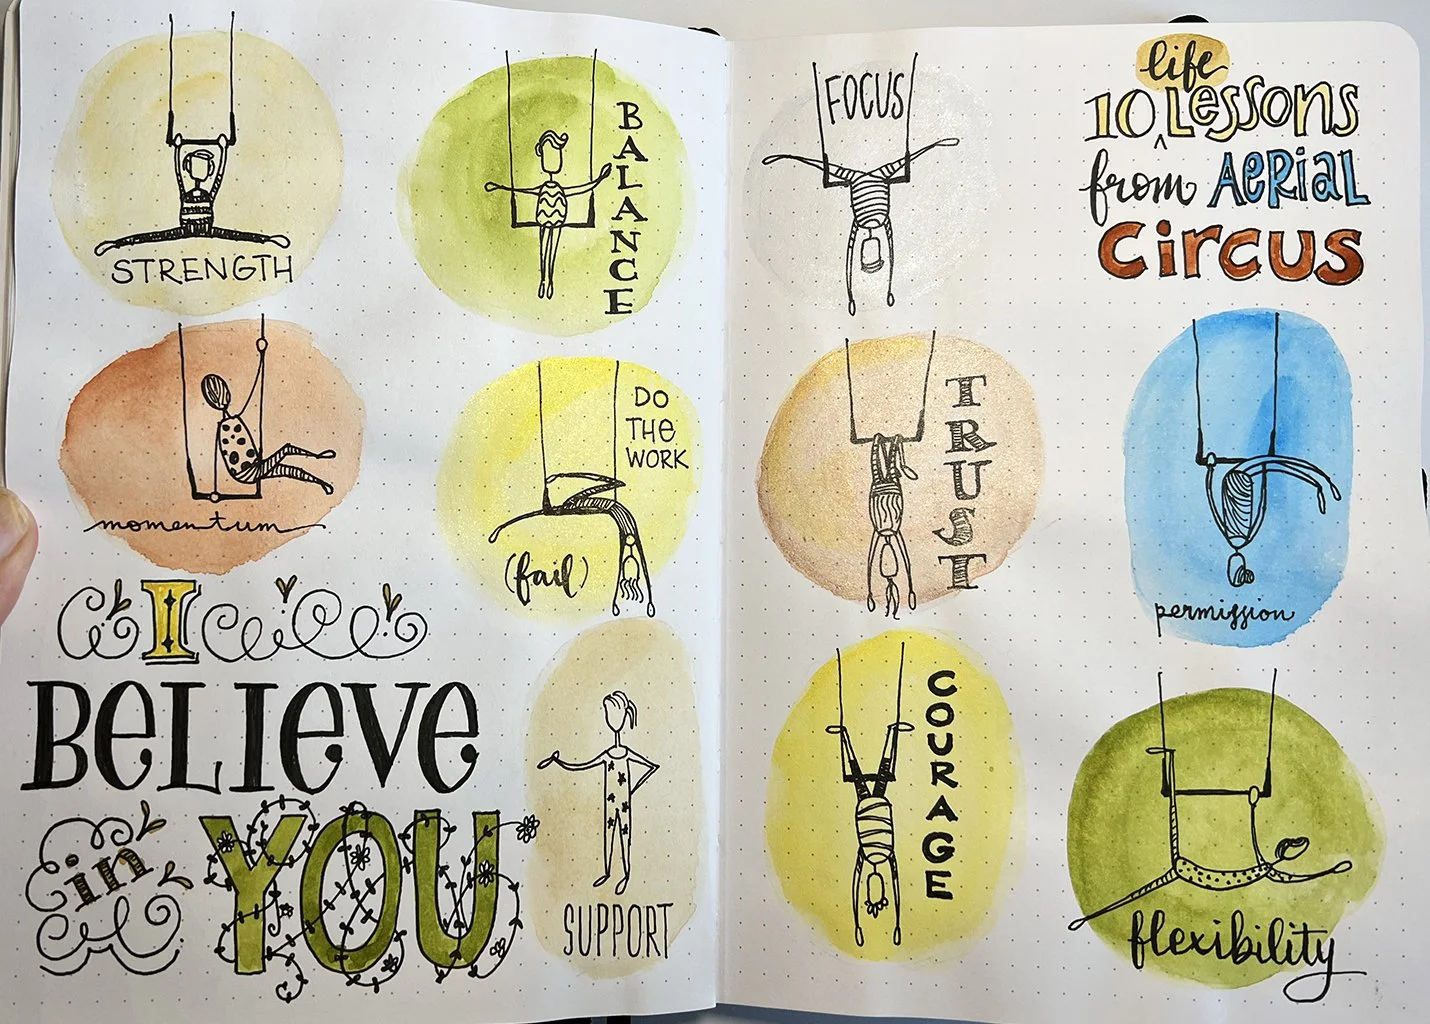 STRENGTH
BALANCE
momentum
DO
THE
WORK
(fail)
I
BELIEVE
in YOU
SUPPORT
FOCUS
life
10 Lessons
from AERIAL
CIRCUS
TRUST
permission
COURAGE
flexibility